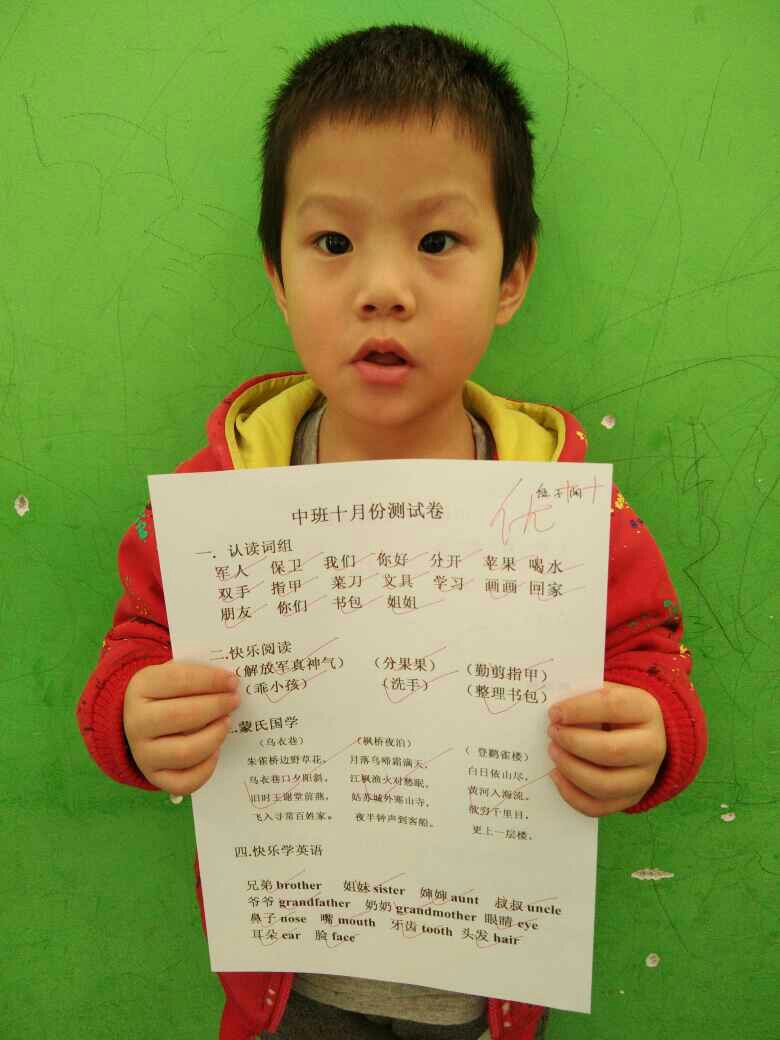 中班十月份测试卷
优++
一. 认读词组
军人 保卫 我们 你好 分开 苹果 喝水
双手 指甲 菜刀 文具 学习 画画 回家
朋友 你们 书包 姐姐
二.快乐阅读
(解放军真神气) (分果果) (勤剪指甲)
(乖小孩) (洗手) (整理书包)
.蒙氏国学
(乌衣巷) (枫桥夜泊) (登鹳雀楼)
朱雀桥边野草花, 月落乌啼霜满天, 白日依山尽,
乌衣巷口夕阳斜, 江枫渔火对愁眠, 黄河入海流,
旧时王谢堂前燕, 姑苏城外寒山寺, 欲穷千里目,
飞入寻常百姓家。 夜半钟声到客船。 更上一层楼。
四.快乐学英语
兄弟 brother 姐妹 sister 婶婶 aunt 叔叔 uncle
爷爷 grandfather 奶奶 grandmother 眼睛 eye
鼻子 nose 嘴 mouth 牙齿 tooth 头发 hair
耳朵 ear 脸 face